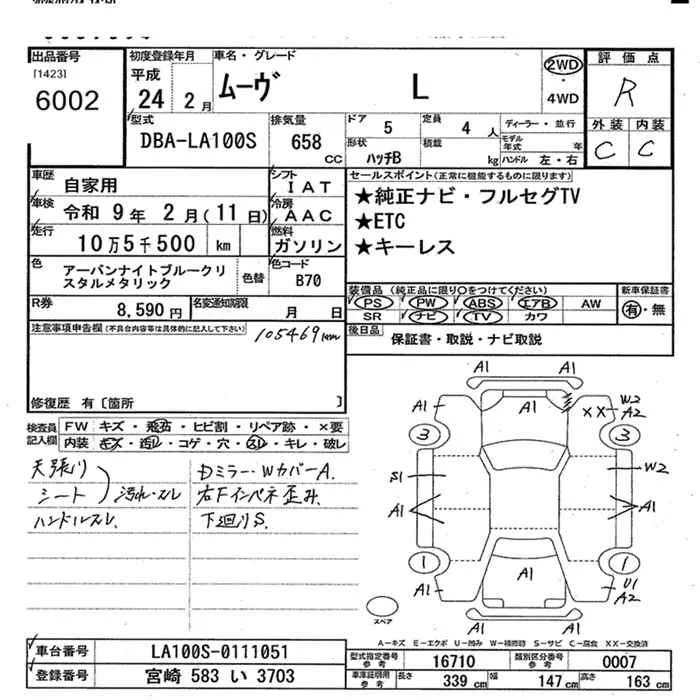 出品番号
[1423]
6002
初度登録年月
平成
24 2月
車名・グレード
ムーヴ L
2WD
・
4WD
評価点
R
型式
DBA-LA100S
排気量
658
CC
ドア 5
定員 4 人
ディーラー・並行
形状 ハッチB
積載 kg
モデル年式 年
ハンドル 左・右
外装 内装
C C
車歴 自家用
シフト IAT
車検 令和 9年 2月(11日)
冷房 AAC
走行 10万5千500 km
燃料 ガソリン
色 アーバンナイトブルークリスタルメタリック
色替
色コード B70
セールスポイント(正常に機能するものに限ります)
★純正ナビ・フルセグTV
★ETC
★キーレス
装備品 (純正品に限り〇をつけてください)
新車保証書
PS PW ABS エアB AW
SR ナビ TV カワ
有・無
R券 8,590円
名変通知期限 月 日
後日品 保証書・取説・ナビ取説
注意事項申告欄(不具合内容等は具体的に記入して下さい)
105469km
修復歴 有〔箇所 〕
検査員記入欄
FW キズ・飛石・ヒビ割・リペア跡・×要
内装 キズ・汚れ・コゲ・穴・スレ・キレ・破レ
天張り
シート 汚れ・スレ
ハンドルスレ
Dミラー・WカバーA.
右Fインパネ歪み.
下廻りS.
A1
A1 A1
XX W2
A2
3 3
S1 W2
A1 A1
1 1
A1 A1 U1
A2
A1
スペア
A-キズ E-エクボ U-凹み W-補修跡 S-サビ C-腐食 XX-交換済
車台番号 LA100S-0111051
登録番号 宮崎 583 い 3703
型式指定番号 参考 16710
類別区分番号 参考 0007
車庫証明用 参考 長さ 339 cm 幅 147 cm 高さ 163 cm